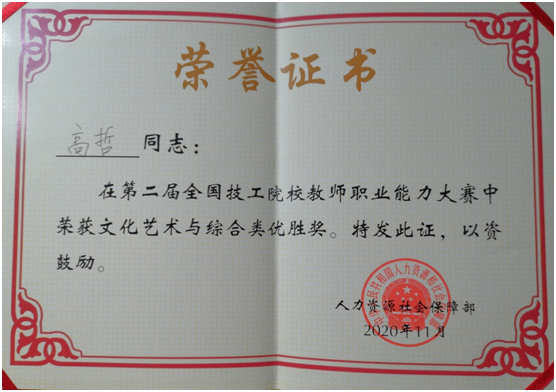 荣誉证书
高哲 同志：
在第二届全国技工院校教师职业能力大赛中
荣获文化艺术与综合类优胜奖。特发此证，以资
鼓励。
中华人民共和国人力资源和社会保障部
人力资源社会保障部
2020年11月